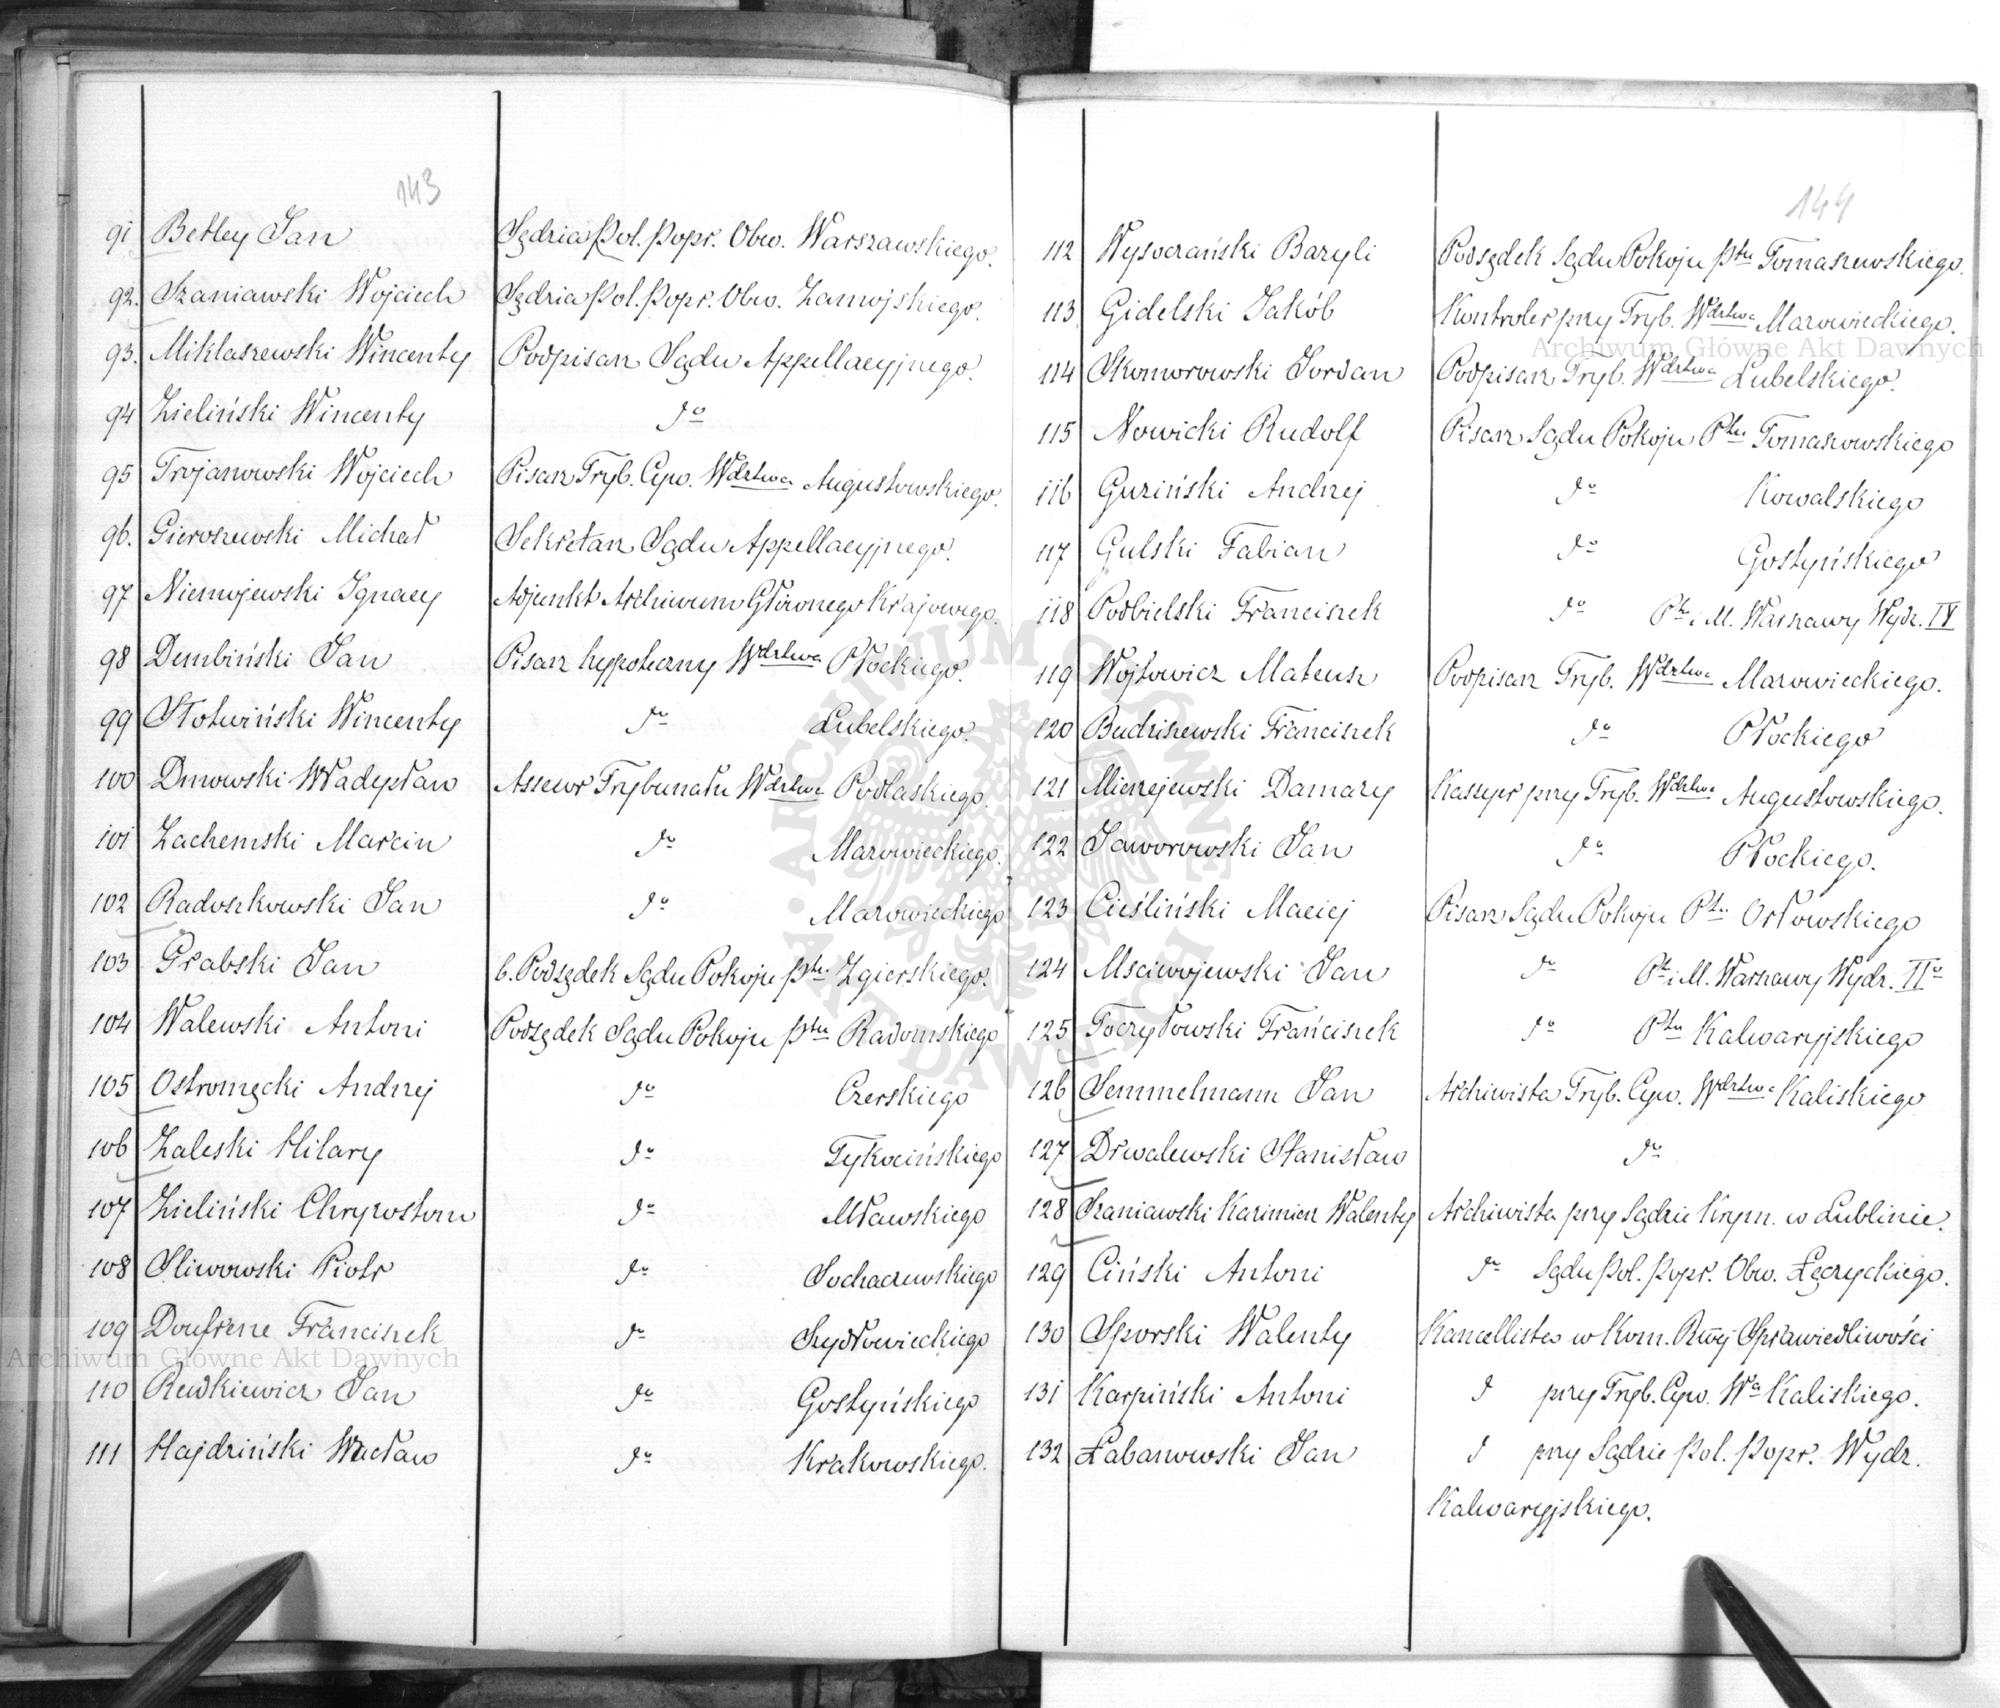 143
91 Betley Jan Sędzia Pol. Popr. Obw. Warszawskiego.
92. Szaniawski Wojciech Sędzia Pol. Popr. Obw. Zamojskiego.
93. Miklaszewski Wincenty Podpisarz Sądu Appellacyjnego.
94 Zieliński Wincenty do
95 Trojanowski Wojciech Pisarz Tryb. Cyw. Wdztwa Augustowskiego.
96. Gieroszewski Michał Sekretarz Sądu Appellacyjnego.
97 Niemojewski Ignacy Adjunkt Archiwum Głównego Krajowego.
98 Dembiński Jan Pisarz hypoteczny Wdztwa Płockiego.
99 Słotwiński Wincenty do Lubelskiego.
100 Dmowski Władysław Assessor Trybunału Wdztwa Podlaskiego.
101 Zachemski Marcin do Mazowieckiego.
102 Radoszkowski Jan do Mazowieckiego
103 Grabski Jan b. Podsędek Sądu Pokoju Ptu Zgierskiego.
104 Walewski Antoni Podsędek Sądu Pokoju Ptu Radomskiego
105 Ostromęcki Andrzej do Czerskiego
106 Zaleski Hilary do Tykocińskiego
107 Zieliński Chryzostom do Mławskiego
108 Sliwowski Piotr do Sochaczewskiego
109 Doufrene Franciszek do Szydłowieckiego
110 Rewkiewicz Jan do Gostyńskiego
111 Hajdziński Wacław do Krakowskiego.
144
112 Wysoczański Bazyli Podsędek Sądu Pokoju Ptu Tomaszewskiego.
113 Gidelski Jakób Kontroler przy Tryb. Wdztwa Mazowieckiego.
114 Skomorowski Jordan Podpisarz Tryb. Wdztwa Lubelskiego.
115 Nowicki Rudolf Pisarz Sądu Pokoju Ptu Tomaszowskiego
116 Guziński Andrzej do Kowalskiego
117 Gulski Fabian do Gostyńskiego
118 Podbielski Franciszek do Ptu i M. Warszawy Wydz. IV
119 Wojtowicz Mateusz Podpisarz Tryb. Wdztwa Mazowieckiego.
120 Budziszewski Franciszek do Płockiego
121 Mierzejewski Damazy Kassyer przy Tryb. Wdztwa Augustowskiego.
122 Jaworowski Jan do Płockiego.
123 Cieśliński Maciej Pisarz Sądu Pokoju Ptu Orłowskiego
124 Msciwojewski Jan do Pt i M. Warszawy Wydz. IIo
125 Toczyłowski Franciszek do Ptu Kalwaryjskiego
126 Semmelmann Jan Archiwista Tryb. Cyw. Wdztwa Kaliskiego
127 Drwalewski Stanisław do
128 Szaniawski Kazimierz Walenty Archiwista przy Sądzie Krym. w Lublinie.
129 Ciński Antoni do Sądu Pol. Popr. Obw. Łęczyckiego.
130 Sporski Walenty Kancellista w Kom. Rząj Sprawiedliwości
131 Karpiński Antoni d przy Tryb. Cyw. Wa Kaliskiego.
132 Łabanowski Jan d przy Sądzie Pol. Popr. Wydz.
Kalwaryjskiego.
Archiwum Główne Akt Dawnych
Archiwum Główne Akt Dawnych
ARCHIWUM GŁÓWNE AKT DAWNYCH